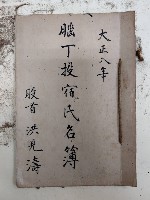 大正八年
腦丁投宿氏名簿
股首 洪見濤